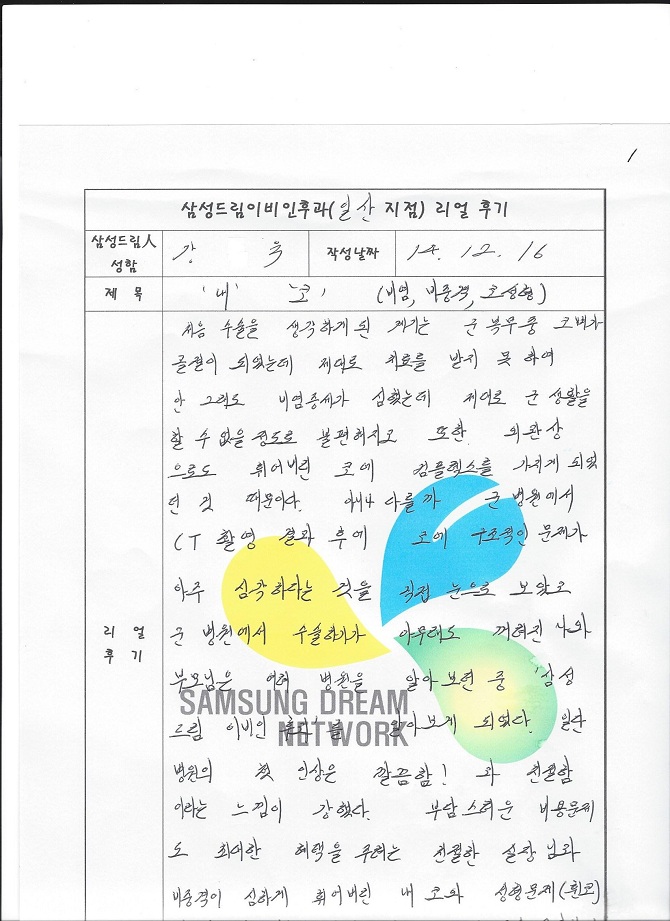 1
삼성드림이비인후과(일산 지점) 리얼 후기
삼성드림人 성함 강 욱 작성날짜 14. 12. 16
제 목 '내' '코' (비염, 비중격, 코성형)
리 얼 후 기
처음 수술을 생각하게 된 계기는 군 복무중 코뼈가
골절이 되었는데 제대로 치료를 받지 못 하여
안 그래도 비염증세가 심했는데 제대로 군 생활을
할 수 없을 정도로 불편해지고 또한 외관상
으로도 휘어버린 코에 컴플렉스를 가지게 되었
던 것 때문이다. 아니나 다를까 군 병원에서
CT 촬영 결과 후에 코에 구조적인 문제가
아주 심각하다는 것을 직접 눈으로 보았고
군 병원에서 수술하기가 아무래도 꺼려진 나와
부모님은 여러 병원을 알아보던 중 '삼성
드림 이비인 후과'를 알아보게 되었다. 일단
병원의 첫 인상은 깔끔함! 과 친절함
이라는 느낌이 강했다. 부담스러운 비용문제
도 최대한 혜택을 주려는 친절한 실장님과
비중격이 심하게 휘어버린 내 코와 성형문제(휜코)
SAMSUNG DREAM
NETWORK